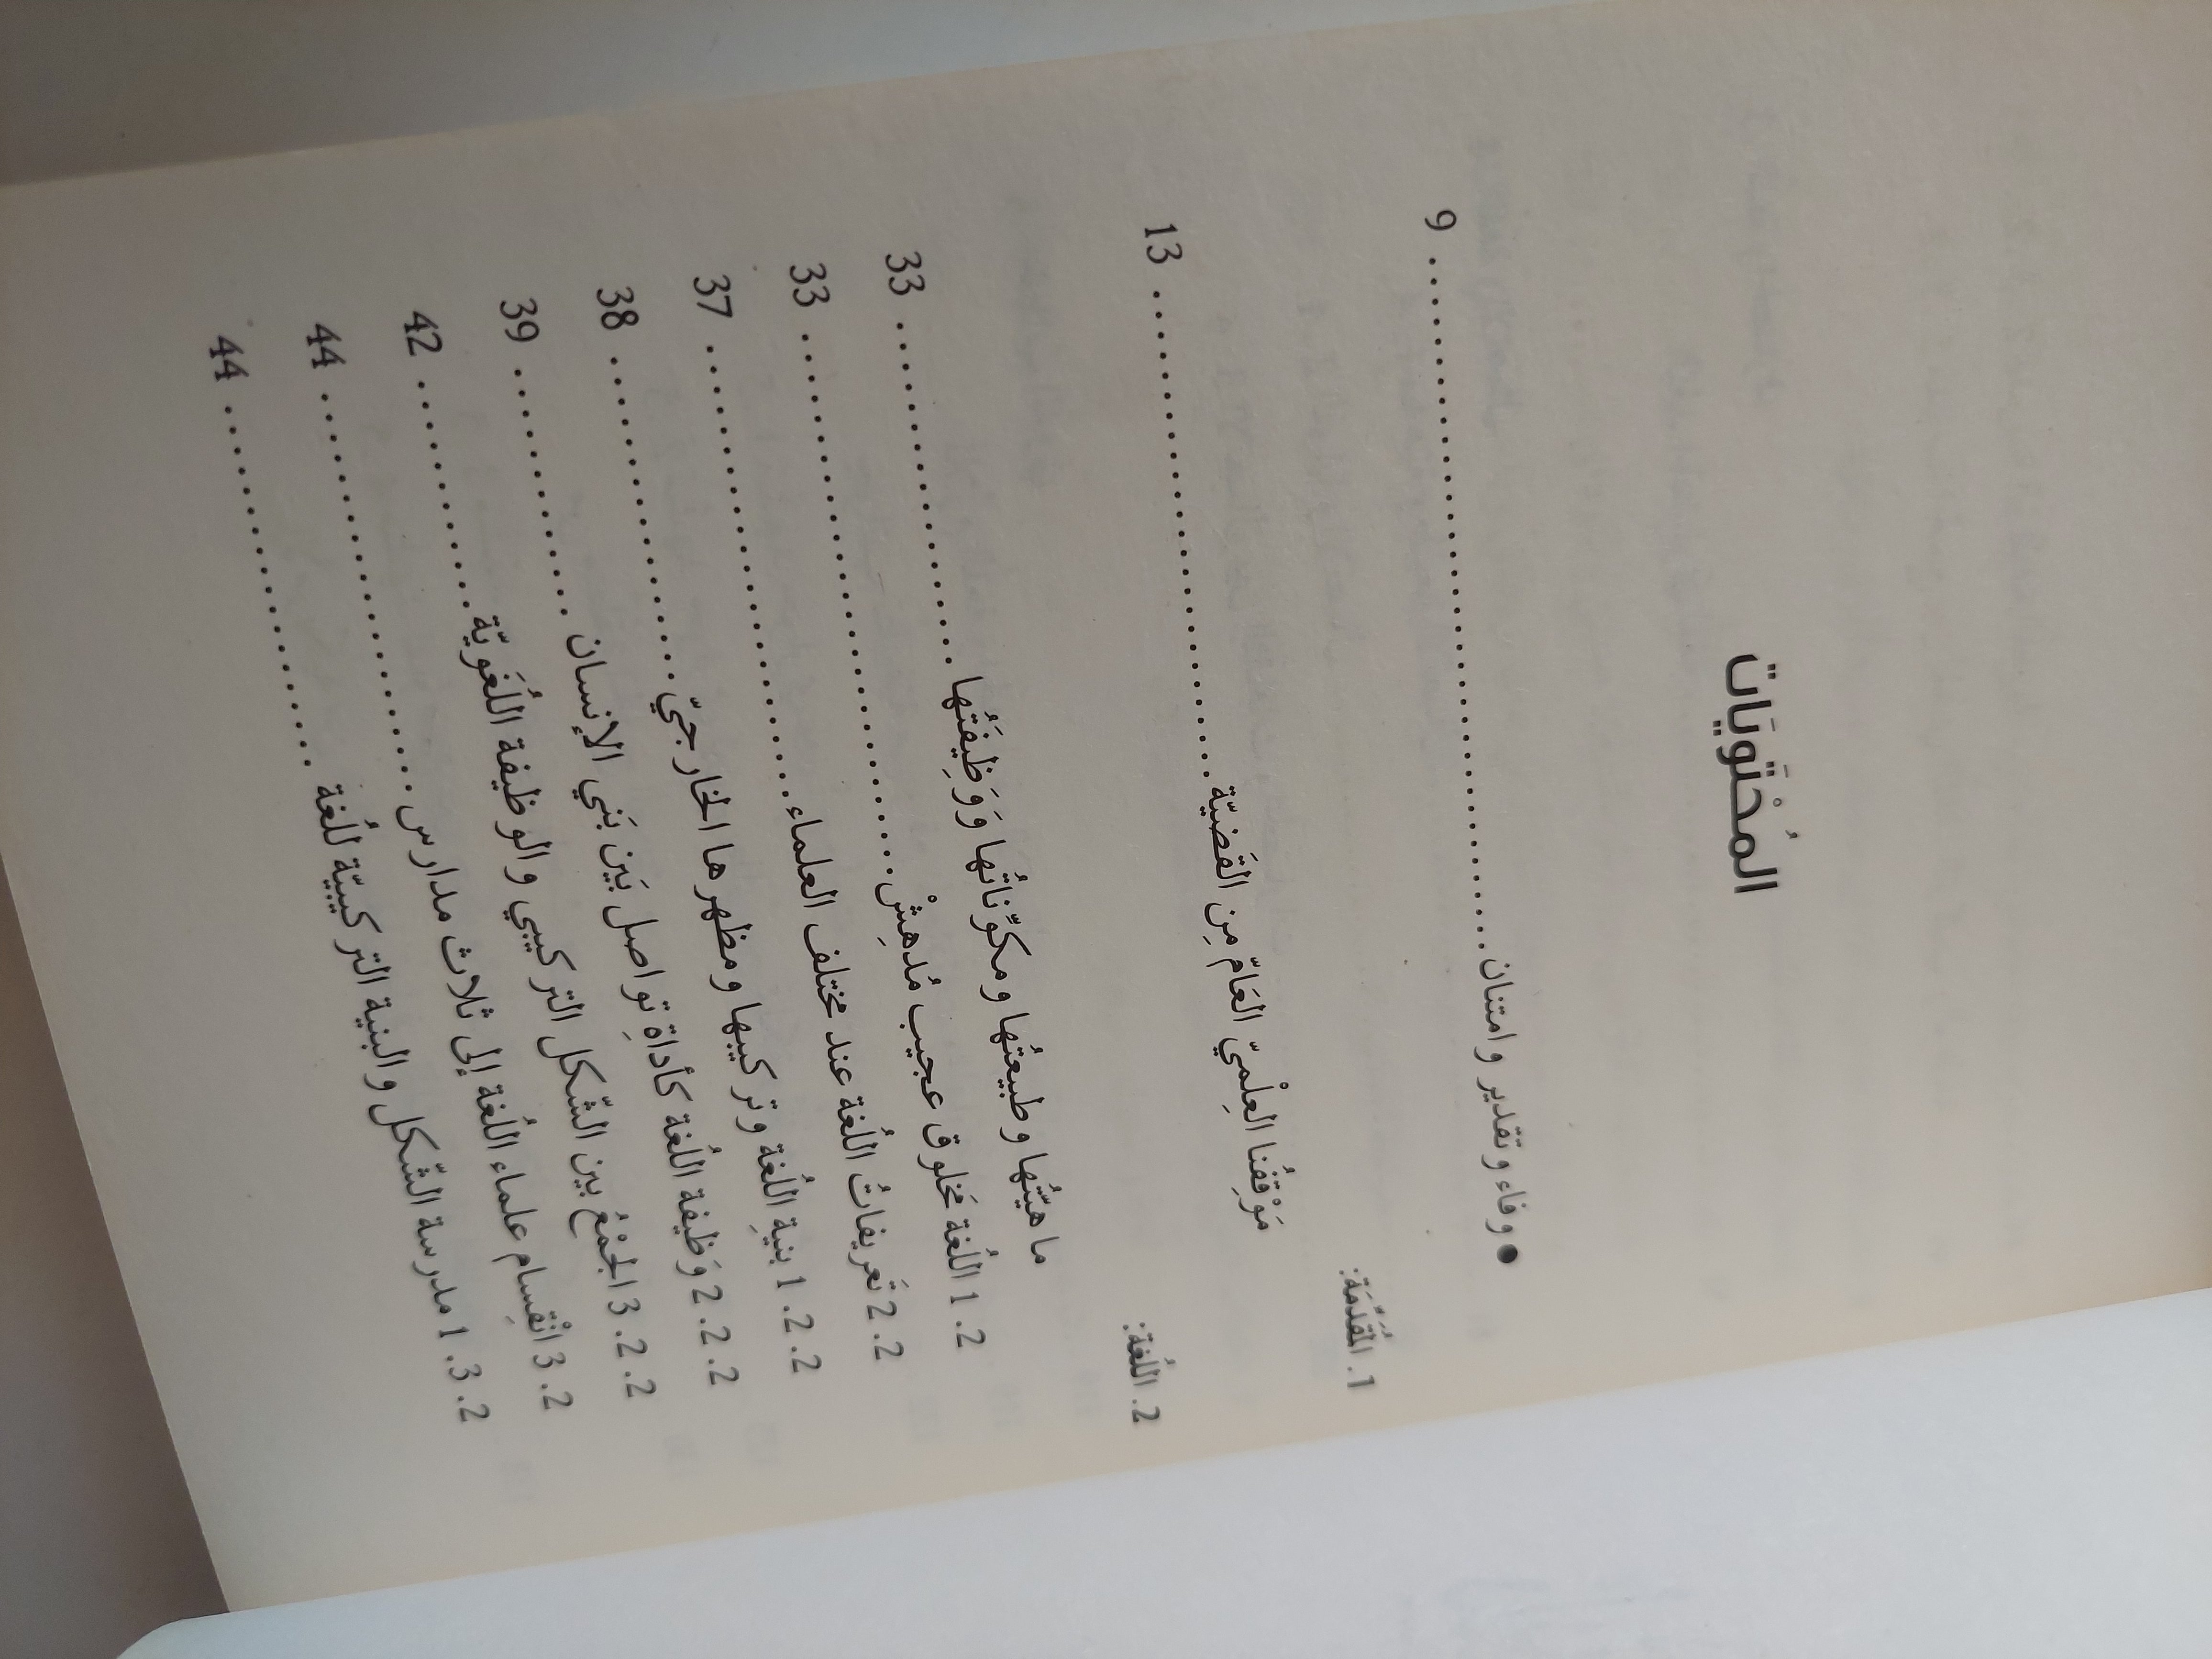 المُحْتَويَات
● وفاء وتقدير وامتنان .......................................... 9
1. المُقَدِّمَة:
مَوْقِفُنا العِلْميّ العَامّ مِن القَضيّة .......................................... 13
2. اللُغة:
ما هيّتُها وطبيعتُها ومكوِّناتُها وَوَظِيفَتُها .......................... 33
2. 1 اللُغة مَخلوق عجيب مُدهِشْ .......................................... 33
2. 2 تَعريفاتُ اللُغة عند مختلف العلماء .................................. 37
2. 2. 1 بنيةِ اللُغة وتركيبها ومظهرها الخارجيّ .......................... 38
2. 2. 2 وَظيفة اللُغة كأداةِ تواصل بَين بَني الإنسان .................. 39
2. 2. 3 الجْمْعُ بين الشّكل التركيبي والوظيفة اللُغَويّة .................. 42
2. 3 انْقِسام علماء اللُغة إلى ثلاث مدارس .............................. 44
2. 3. 1 مدرسة الشّكل والبنية التركيبيّة للُغة .............................. 44